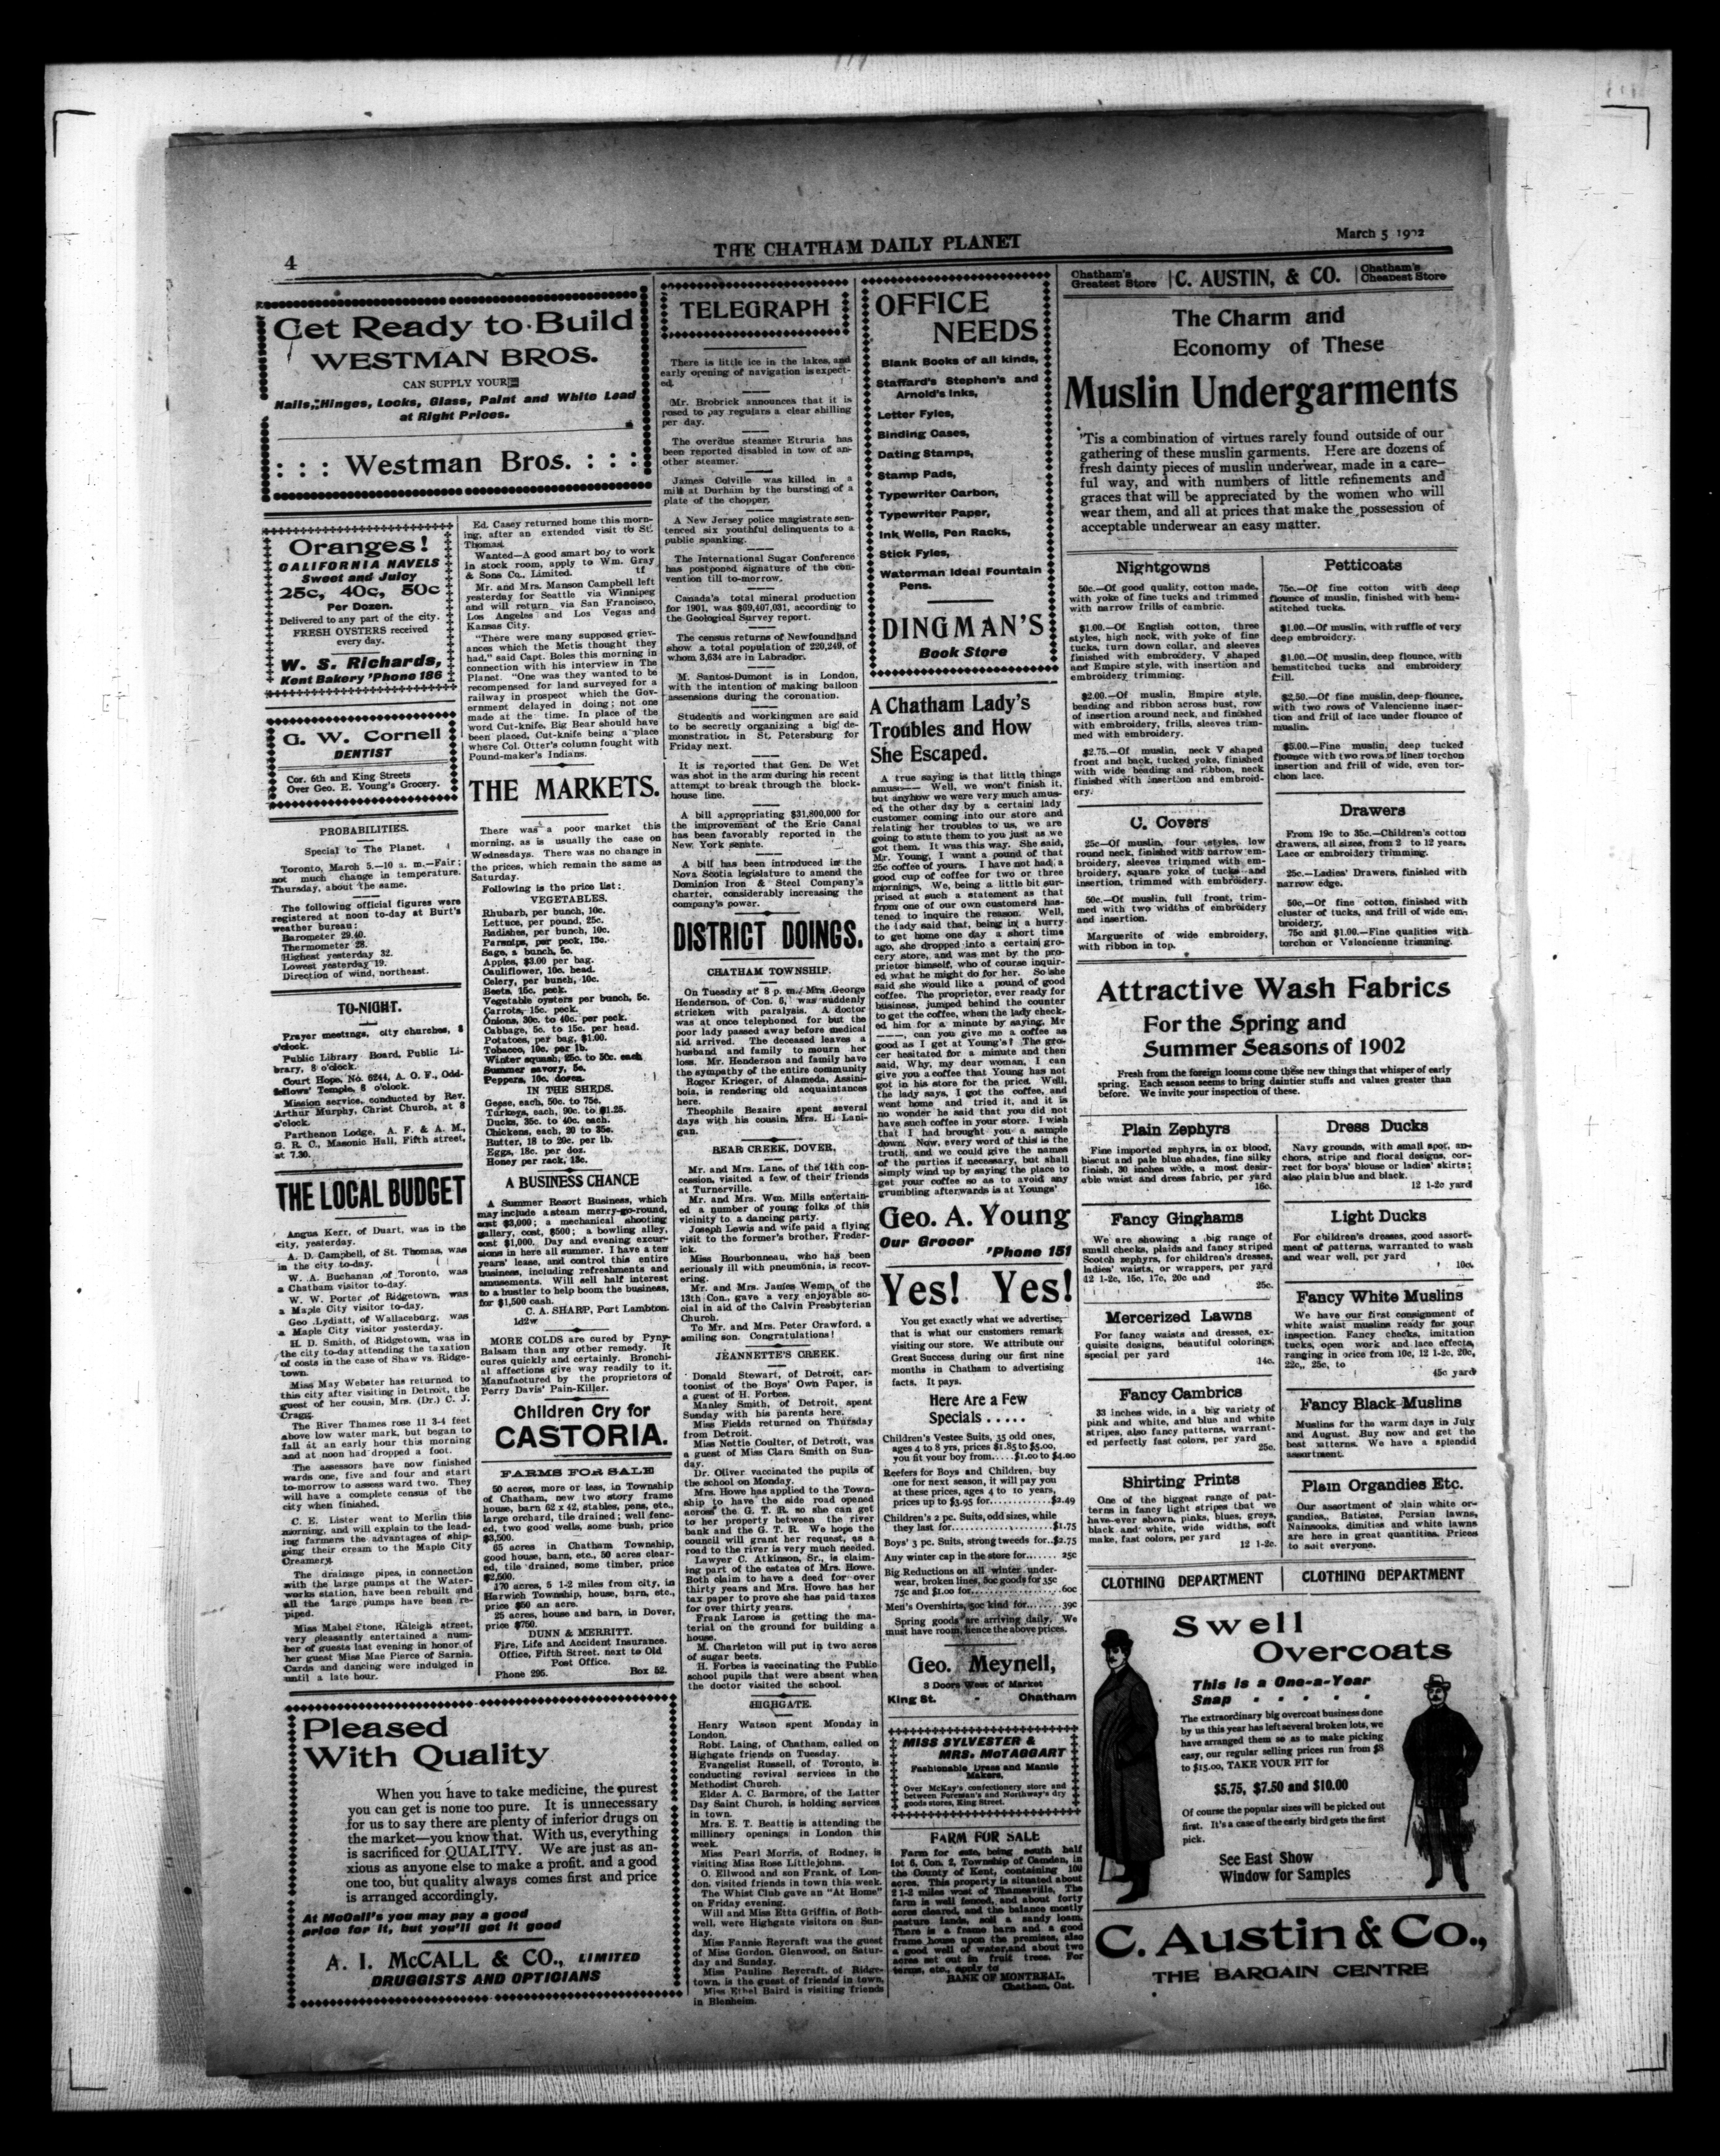 4
THE CHATHAM DAILY PLANET
March 5 1902
Get Ready to Build
WESTMAN BROS.
CAN SUPPLY YOUR
Nails, Hinges, Locks, Glass, Paint and White Lead
at Right Prices.
: : : Westman Bros. : : :
Oranges!
CALIFORNIA NAVELS
Sweet and Juicy
25c, 40c, 50c
Per Dozen.
Delivered to any part of the city.
FRESH OYSTERS received
every day.
W. S. Richards,
Kent Bakery 'Phone 186
G. W. Cornell
DENTIST
Cor. 6th and King Streets
Over Geo. E. Young's Grocery.
PROBABILITIES.
Special to The Planet.
Toronto, March 5.—10 a. m.—Fair;
not much change in temperature.
Thursday, about the same.
The following official figures were
registered at noon to-day at Burt's
weather bureau:
Barometer 29.40.
Thermometer 28.
Highest yesterday 32.
Lowest yesterday 19.
Direction of wind, northeast.
TO-NIGHT.
Prayer meetings, city churches, 8
o'clock.
Public Library Board, Public Li-
brary, 8 o'clock.
Court Hope, No. 6244, A. O. F., Odd-
fellows' Temple, 8 o'clock.
Mission service, conducted by Rev.
Arthur Murphy, Christ Church, at 8
o'clock.
Parthenon Lodge, A. F. & A. M.,
G. R. C., Masonic Hall, Fifth street,
at 7.30.
THE LOCAL BUDGET
Angus Kerr, of Duart, was in the
city, yesterday.
A. D. Campbell, of St. Thomas, was
in the city to-day.
W. A. Buchanan of Toronto, was
a Chatham visitor to-day.
W. W. Porter of Ridgetown, was
a Maple City visitor to-day.
Geo Lydiatt, of Wallaceburg, was
a Maple City visitor yesterday.
H. D. Smith, of Ridgetown, was in
the city to-day attending the taxation
of costs in the case of Shaw vs. Ridge-
town.
Miss May Webster has returned to
this city after visiting in Detroit, the
guest of her cousin, Mrs. (Dr.) C. J.
Cragg.
The River Thames rose 11 3-4 feet
above low water mark, but began to
fall at an early hour this morning
and at noon had dropped a foot.
The assessors have now finished
wards one, five and four and start
to-morrow to assess ward two. They
will have a complete census of the
city when finished.
C. E. Lister went to Merlin this
morning, and will explain to the lead-
ing farmers the advantages of ship-
ping their cream to the Maple City
Creamery.
The drainage pipes, in connection
with the large pumps at the Water-
works station, have been rebuilt and
all the large pumps have been re-
piped.
Miss Mabel Stone, Raleigh street,
very pleasantly entertained a num-
ber of guests last evening in honor of
her guest Miss Mae Pierce of Sarnia.
Cards and dancing were indulged in
until a late hour.
Ed. Casey returned home this morn-
ing, after an extended visit to St.
Thomas.
Wanted—A good smart boy to work
in stock room, apply to Wm. Gray
& Sons Co., Limited. tf
Mr. and Mrs. Manson Campbell left
yesterday for Seattle via Winnipeg
and will return via San Francisco,
Los Angeles and Los Vegas and
Kansas City.
"There were many supposed griev-
ances which the Metis thought they
had," said Capt. Boles this morning in
connection with his interview in The
Planet. "One was they wanted to be
recompensed for land surveyed for a
railway in prospect which the Gov-
ernment delayed in doing; not one
made at the time. In place of the
word Cut-knife, Big Bear should have
been placed, Cut-knife being a place
where Col. Otter's column fought with
Pound-maker's Indians.
THE MARKETS.
There was a poor market this
morning, as is usually the case on
Wednesdays. There was no change in
the prices, which remain the same as
Saturday.
Following is the price list:
VEGETABLES.
Rhubarb, per bunch, 10c.
Lettuce, per pound, 25c.
Radishes, per bunch, 10c.
Parsnips, per peck, 15c.
Sage, a bunch, 5c.
Apples, $3.00 per bag.
Cauliflower, 10c. head.
Celery, per bunch, 10c.
Beets, 15c. peck.
Vegetable oysters per bunch, 5c.
Carrots, 15c. peck.
Onions, 30c. to 40c. per peck.
Cabbage, 5c. to 15c. per head.
Potatoes, per bag, $1.00.
Tobacco, 10c. per lb.
Winter squash, 25c. to 50c. each
Summer savory, 5c.
Peppers, 10c. dozen.
IN THE SHEDS.
Geese, each, 50c. to 75c.
Turkeys, each, 90c. to $1.25.
Ducks, 35c. to 40c. each.
Chickens, each, 20 to 35c.
Butter, 18 to 20c. per lb.
Eggs, 18c. per doz.
Honey per rack, 13c.
A BUSINESS CHANCE
A Summer Resort Business, which
may include a steam merry-go-round,
cost $3,000; a mechanical shooting
gallery, cost, $500; a bowling alley,
cost $1,000. Day and evening excur-
sions in here all summer. I have a ten
years' lease, and control this entire
business, including refreshments and
amusements. Will sell half interest
to a hustler to help boom the business,
for $1,500 cash.
C. A. SHARP, Port Lambton.
1d2w
MORE COLDS are cured by Pyny-
Balsam than any other remedy. It
cures quickly and certainly. Bronchi-
al affections give way readily to it.
Manufactured by the proprietors of
Perry Davis' Pain-Killer.
Children Cry for
CASTORIA.
FARMS FOR SALE
50 acres, more or less, in Township
of Chatham, new two story frame
house, barn 62 x 42, stables, pens, etc.,
large orchard, tile drained; well fenc-
ed, two good wells, some bush, price
$3,500.
65 acres in Chatham Township,
good house, barn, etc., 50 acres clear-
ed, tile drained, some timber, price
$2,500.
170 acres, 5 1-2 miles from city, in
Harwich Township, house, barn, etc.,
price $50 an acre.
25 acres, house and barn, in Dover,
price $750.
DUNN & MERRITT.
Fire, Life and Accident Insurance.
Office, Fifth Street. next to Old
Post Office.
Phone 295. Box 52.
Pleased
With Quality
When you have to take medicine, the purest
you can get is none too pure. It is unnecessary
for us to say there are plenty of inferior drugs on
the market—you know that. With us, everything
is sacrificed for QUALITY. We are just as an-
xious as anyone else to make a profit, and a good
one too, but quality always comes first and price
is arranged accordingly.
At McCall's you may pay a good
price for it, but you'll get it good
A. I. McCALL & CO., LIMITED
DRUGGISTS AND OPTICIANS
TELEGRAPH
There is little ice in the lakes, and
early opening of navigation is expect-
ed.
Mr. Brobrick announces that it is
posed to pay regulars a clear shilling
per day.
The overdue steamer Etruria has
been reported disabled in tow of an-
other steamer.
James Colville was killed in a
mill at Durham by the bursting of a
plate of the chopper.
A New Jersey police magistrate sen-
tenced six youthful delinquents to a
public spanking.
The International Sugar Conference
has postponed signature of the con-
vention till to-morrow.
Canada's total mineral production
for 1901, was $69,407,031, according to
the Geological Survey report.
The census returns of Newfoundland
show a total population of 220,249, of
whom 3,634 are in Labrador.
M. Santos-Dumont is in London,
with the intention of making balloon
assensions during the coronation.
Students and workingmen are said
to be secretly organizing a big de-
monstration in St. Petersburg for
Friday next.
It is reported that Gen. De Wet
was shot in the arm during his recent
attempt to break through the block-
house line.
A bill appropriating $31,800,000 for
the improvement of the Erie Canal
has been favorably reported in the
New York senate.
A bill has been introduced in the
Nova Scotia legislature to amend the
Dominion Iron & Steel Company's
charter, considerably increasing the
company's power.
DISTRICT DOINGS.
CHATHAM TOWNSHIP.
On Tuesday at 8 p. m. Mrs George
Henderson, of Con. 6, was suddenly
stricken with paralysis. A doctor
was at once telephoned for but the
poor lady passed away before medical
aid arrived. The deceased leaves a
husband and family to mourn her
loss. Mr. Henderson and family have
the sympathy of the entire community
Roger Krieger, of Alameda, Assini-
boia, is rendering old acquaintances
here.
Theophile Bezaire spent several
days with his cousin Mrs. H. Lani-
gan.
BEAR CREEK, DOVER,
Mr. and Mrs. Lane, of the 14th con-
cession, visited a few of their friends
at Turnerville.
Mr. and Mrs. Wm. Mills entertain-
ed a number of young folks of this
vicinity to a dancing party.
Joseph Lewis and wife paid a flying
visit to the former's brother, Freder-
ick.
Miss Bourbonneau, who has been
seriously ill with pneumonia, is recov-
ering.
Mr. and Mrs. James Wemp, of the
13th Con., gave a very enjoyable so-
cial in aid of the Calvin Presbyterian
Church.
To Mr. and Mrs. Peter Crawford, a
smiling son. Congratulations!
JEANNETTE'S CREEK.
Donald Stewart, of Detroit, car-
toonist of the Boys' Own Paper, is
a guest of H. Forbes.
Manley Smith, of Detroit, spent
Sunday with his parents here.
Miss Fields returned on Thursday
from Detroit.
Miss Nettie Coulter, of Detroit, was
a guest of Miss Clara Smith on Sun-
day.
Dr. Oliver vaccinated the pupils of
the school on Monday.
Mrs. Howe has applied to the Town-
ship to have the side road opened
across the G. T. R. so she can get
to her property between the river
bank and the G. T. R. We hope the
council will grant her request, as a
road to the river is very much needed.
Lawyer C. Atkinson, Sr., is claim-
ing part of the estates of Mrs. Howe.
Both claim to have a deed for over
thirty years and Mrs. Howe has her
tax paper to prove she has paid taxes
for over thirty years.
Frank Larose is getting the ma-
terial on the ground for building a
house.
M. Charleton will put in two acres
of sugar beets.
H. Forbes is vaccinating the Public
school pupils that were absent when
the doctor visited the school.
HIGHGATE.
Henry Watson spent Monday in
London.
Robt. Laing, of Chatham, called on
Highgate friends on Tuesday.
Evangelist Russell, of Toronto, is
conducting revival services in the
Methodist Church.
Elder A. C. Barmore, of the Latter
Day Saint Church, is holding services
in town.
Mrs. E. T. Beattie is attending the
millinery openings in London this
week.
Miss Pearl Morris, of Rodney, is
visiting Miss Rose Littlejohns.
O. Ellwood and son Frank, of Lon-
don, visited friends in town this week.
The Whist Club gave an "At Home"
on Friday evening.
Will and Miss Etta Griffin, of Both-
well, were Highgate visitors on Sun-
day.
Miss Fannie Reycraft was the guest
of Miss Gordon, Glenwood, on Satur-
day and Sunday.
Miss Pauline Reycraft, of Ridge-
town, is the guest of friends in town.
Miss Ethel Baird is visiting friends
in Blenheim.
OFFICE
NEEDS
Blank Books of all kinds,
Staffard's Stephen's and
Arnold's Inks,
Letter Fyles,
Binding Cases,
Dating Stamps,
Stamp Pads,
Typewriter Carbon,
Typewriter Paper,
Ink Wells, Pen Racks,
Stick Fyles,
Waterman Ideal Fountain
Pens.
DINGMAN'S
Book Store
A Chatham Lady's
Troubles and How
She Escaped.
A true saying is that little things
amuse—— Well, we won't finish it,
but anyhow we were very much amus-
ed the other day by a certain lady
customer coming into our store and
relating her troubles to us, we are
going to state them to you just as we
got them. It was this way. She said,
Mr. Young, I want a pound of that
25c coffee of yours. I have not had a
good cup of coffee for two or three
mornings. We, being a little bit sur-
prised at such a statement as that
from one of our own customers has-
tened to inquire the reason. Well,
the lady said that, being in a hurry
to get home one day a short time
ago, she dropped into a certain gro-
cery store, and was met by the pro-
prietor himself, who of course inquir-
ed what he might do for her. So she
said she would like a pound of good
coffee. The proprietor, ever ready for
business, jumped behind the counter
to get the coffee, when the lady check-
ed him for a minute by saying, Mr
———, can you give me a coffee as
good as I get at Young's? The gro-
cer hesitated for a minute and then
said, Why, my dear woman, I can
give you a coffee that Young has not
got in his store for the price. Well,
the lady says, I got the coffee, and
went home and tried it, and it is
no wonder he said that you did not
have such coffee in your store. I wish
that I had brought you a sample
down. Now, every word of this is the
truth, and we could give the names
of the parties if necessary, but shall
simply wind up by saying the place to
get your coffee so as to avoid any
grumbling afterwards is at Youngs'
Geo. A. Young
Our Grocer
'Phone 151
Yes! Yes!
You get exactly what we advertise,
that is what our customers remark
visiting our store. We attribute our
Great Success during our first nine
months in Chatham to advertising
facts. It pays.
Here Are a Few
Specials . . . . .
Children's Vestee Suits, 35 odd ones,
ages 4 to 8 yrs, prices $1.85 to $5.00,
you fit your boy from.....$1.00 to $4.00
Reefers for Boys and Children, buy
one for next season, it will pay you
at these prices, ages 4 to 10 years,
prices up to $3.95 for............$2.49
Children's 2 pc. Suits, odd sizes, while
they last for....................$1.75
Boys' 3 pc. Suits, strong tweeds for..$2.75
Any winter cap in the store for...... 25c
Big Reductions on all winter under-
wear, broken lines, 50c goods for 35c
75c and $1.00 for..................60c
Men's Overshirts, 50c kind for.......39c
Spring goods are arriving daily. We
must have room, hence the above prices.
Geo. Meynell,
3 Doors West of Market
King St. - Chatham
MISS SYLVESTER &
MRS. McTAGGART
Fashionable Dress and Mantle
Makers,
Over McKay's confectionery store and
between Foreman's and Northway's dry
goods stores, King Street.
FARM FOR SALE
Farm for sale, being south half
lot 6, Con. 2, Township of Camden, in
the County of Kent, containing 100
acres. This property is situated about
2 1-2 miles west of Thamesville. The
farm is well fenced, and about forty
acres cleared, and the balance mostly
pasture lands, soil a sandy loam.
There is a frame barn and a good
frame house upon the premises, also
a good well of water, and about two
acres set out in fruit trees. For
terms, etc., apply to
BANK OF MONTREAL,
Chatham, Ont.
Chatham's
Greatest Store
C. AUSTIN, & CO.
Chatham's
Cheapest Store
The Charm and
Economy of These
Muslin Undergarments
'Tis a combination of virtues rarely found outside of our
gathering of these muslin garments. Here are dozens of
fresh dainty pieces of muslin underwear, made in a care-
ful way, and with numbers of little refinements and
graces that will be appreciated by the women who will
wear them, and all at prices that make the possession of
acceptable underwear an easy matter.
Nightgowns
50c.—Of good quality, cotton made,
with yoke of fine tucks and trimmed
with narrow frills of cambric.
$1.00.—Of English cotton, three
styles, high neck, with yoke of fine
tucks, turn down collar, and sleeves
finished with embroidery, V shaped
and Empire style, with insertion and
embroidery trimming.
$2.00.—Of muslin, Empire style,
beading and ribbon across bust, row
of insertion around neck, and finished
with embroidery, frills, sleeves trim-
med with embroidery.
$2.75.—Of muslin, neck V shaped
front and back, tucked yoke, finished
with wide beading and ribbon, neck
finished with insertion and embroid-
ery.
C. Covers
25c—Of muslin, four styles, low
round neck, finished with narrow em-
broidery, sleeves trimmed with em-
broidery, square yoke of tucks and
insertion, trimmed with embroidery.
50c.—Of muslin, full front, trim-
med with two widths of embroidery
and insertion.
Marguerite of wide embroidery,
with ribbon in top.
Petticoats
75c.—Of fine cotton with deep
flounce of muslin, finished with hem-
stitched tucks.
$1.00.—Of muslin, with ruffle of very
deep embroidery.
$1.00.—Of muslin, deep flounce, with
hemstitched tucks and embroidery
frill.
$2.50.—Of fine muslin, deep flounce,
with two rows of Valencienne inser-
tion and frill of lace under flounce of
muslin.
$5.00.—Fine muslin, deep tucked
flounce with two rows of linen torchon
insertion and frill of wide, even tor-
chon lace.
Drawers
From 19c to 35c.—Children's cotton
drawers, all sizes, from 2 to 12 years,
Lace or embroidery trimming.
25c.—Ladies' Drawers, finished with
narrow edge.
50c,—Of fine cotton, finished with
cluster of tucks, and frill of wide em-
broidery.
75c and $1.00—Fine qualities with
torchon or Valencienne trimming.
Attractive Wash Fabrics
For the Spring and
Summer Seasons of 1902
Fresh from the foreign looms come these new things that whisper of early
spring. Each season seems to bring daintier stuffs and values greater than
before. We invite your inspection of these.
Plain Zephyrs
Fine imported zephyrs, in ox blood,
biscut and pale blue shades, fine silky
finish, 30 inches wide, a most desir-
able waist and dress fabric, per yard
16c.
Fancy Ginghams
We are showing a big range of
small checks, plaids and fancy striped
Scotch zephyrs, for children's dresses,
ladies' waists, or wrappers, per yard
12 1-2c, 15c, 17c, 20c and
25c.
Mercerized Lawns
For fancy waists and dresses, ex-
quisite designs, beautiful colorings,
special per yard
14c.
Fancy Cambrics
33 inches wide, in a big variety of
pink and white, and blue and white
stripes, also fancy patterns, warrant-
ed perfectly fast colors, per yard
25c.
Shirting Prints
One of the biggest range of pat-
terns in fancy light stripes that we
have ever shown, pinks, blues, greys,
black and white, wide widths, soft
make, fast colors, per yard
12 1-2c.
CLOTHING DEPARTMENT
Dress Ducks
Navy grounds, with small spot, an-
chors, stripe and floral designs, cor-
rect for boys' blouse or ladies' skirts;
also plain blue and black.
12 1-2c yard
Light Ducks
For children's dresses, good assort-
ment of patterns, warranted to wash
and wear well, per yard
10c.
Fancy White Muslins
We have our first consignment of
white waist muslins ready for your
inspection. Fancy checks, imitation
tucks, open work and lace effects,
ranging in price from 10c, 12 1-2c, 20c,
22c., 25c, to
45c yard
Fancy Black Muslins
Muslins for the warm days in July
and August. Buy now and get the
best patterns. We have a splendid
assortment.
Plain Organdies Etc.
Our assortment of plain white or-
gandies, Batistes, Persian lawns,
Nainsooks, dimities and white lawns
are here in great quantities. Prices
to suit everyone.
CLOTHING DEPARTMENT
Swell
Overcoats
This is a One-a-Year
Snap . . . . .
The extraordinary big overcoat business done
by us this year has left several broken lots, we
have arranged them so as to make picking
easy, our regular selling prices run from $8
to $15.00, TAKE YOUR PIT for
$5.75, $7.50 and $10.00
Of course the popular sizes will be picked out
first. It's a case of the early bird gets the first
pick.
See East Show
Window for Samples
C. Austin & Co.,
THE BARGAIN CENTRE